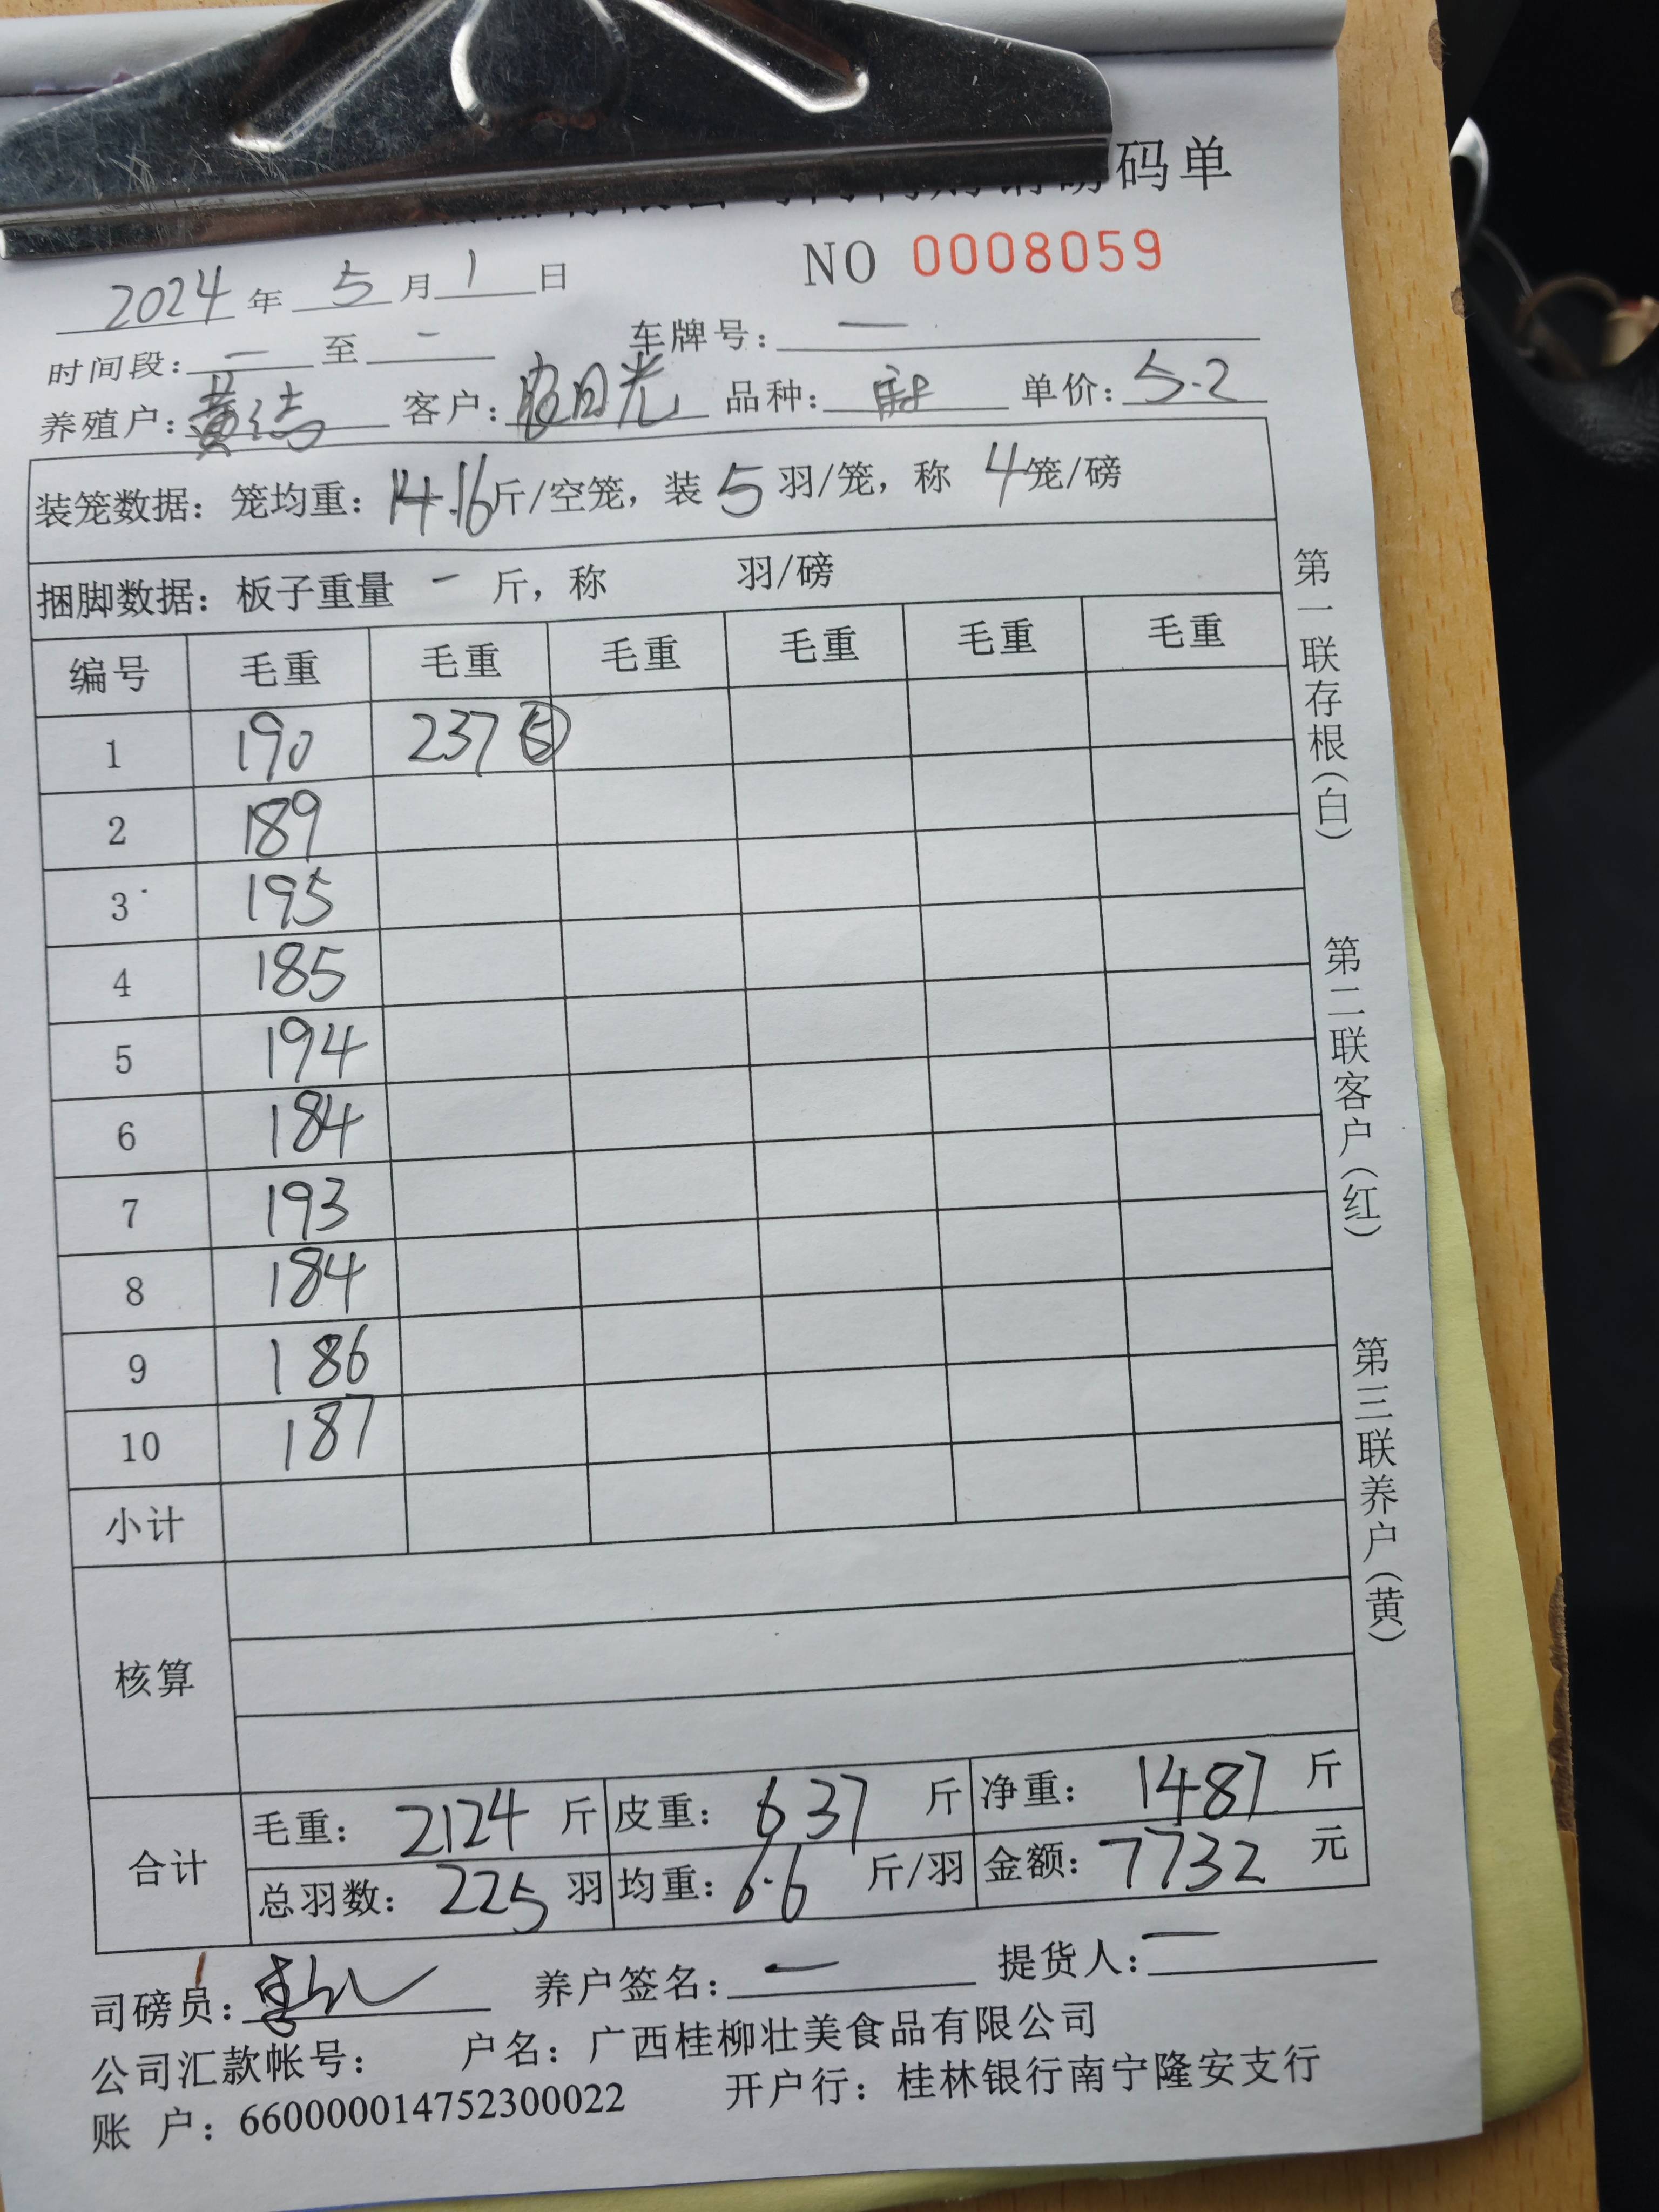 码单
NO 0008059
2024 年 5 月 1 日
时间段: 一 至 一 车牌号: 一
养殖户: 黄 客户: 光 品种: 单价: 5.2
装笼数据: 笼均重: 14.16 斤/空笼, 装 5 羽/笼, 称 4 笼/磅
捆脚数据: 板子重量 一 斤, 称 羽/磅
编号 毛重 毛重 毛重 毛重 毛重 毛重
1 190 237 ⑤
2 189
3 195
4 185
5 194
6 184
7 193
8 184
9 186
10 187
小计
核算
合计
毛重: 2124 斤 皮重: 637 斤 净重: 1487 斤
总羽数: 225 羽 均重: 6.6 斤/羽 金额: 7732 元
司磅员: 李 养户签名: 一 提货人: 一
公司汇款帐号: 户名: 广西桂柳壮美食品有限公司
账 户: 660000014752300022 开户行: 桂林银行南宁隆安支行
第一联存根(白)
第二联客户(红)
第三联养户(黄)